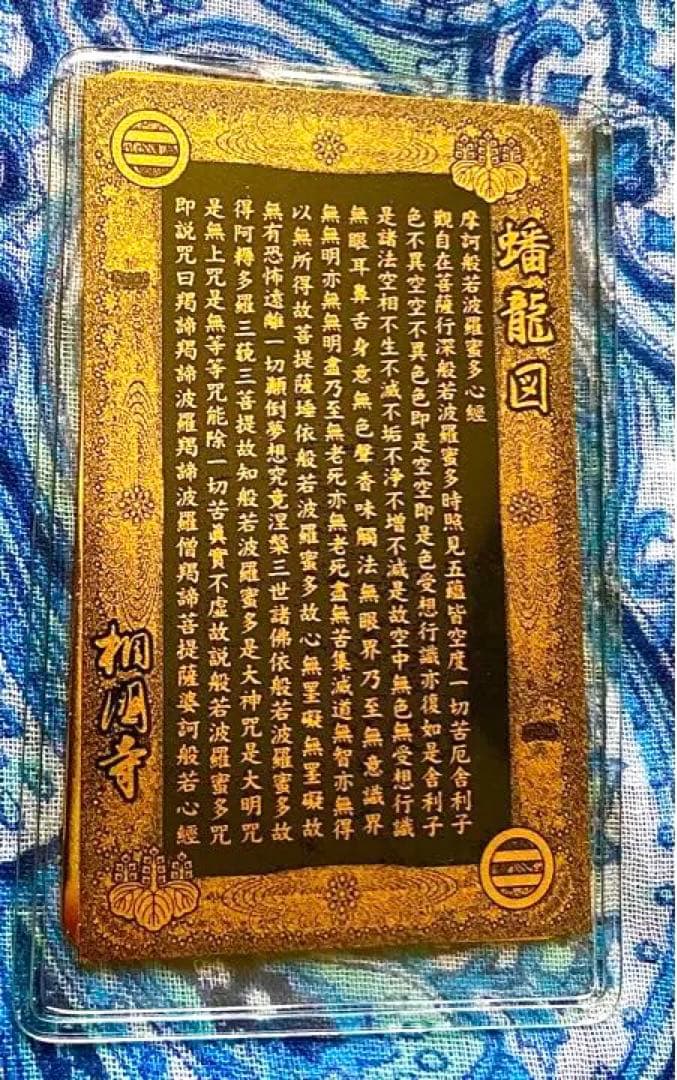 蟠龍図
摩訶般若波羅蜜多心經
觀自在菩薩行深般若波羅蜜多時照見五蘊皆空度一切苦厄舍利子
色不異空空不異色色即是空空即是色受想行識亦復如是舍利子
是諸法空相不生不滅不垢不浄不增不減是故空中無色無受想行識
無眼耳鼻舌身意無色聲香味觸法無眼界乃至無意識界
無無明亦無無明盡乃至無老死亦無老死盡無苦集滅道無智亦無得
以無所得故菩提薩埵依般若波羅蜜多故心無罣礙無罣礙故
無有恐怖遠離一切顛倒夢想究竟涅槃三世諸佛依般若波羅蜜多故
得阿耨多羅三藐三菩提故知般若波羅蜜多是大神咒是大明咒
是無上咒是無等等咒能除一切苦眞實不虛故説般若波羅蜜多咒
即説咒曰羯諦羯諦波羅羯諦波羅僧羯諦菩提薩婆訶般若心經
相国寺